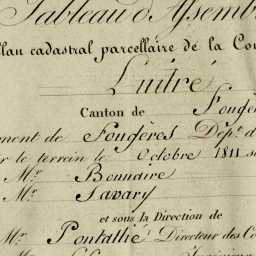 Tableau d'Assemb
Plan cadastral parcellaire de la Co
Luitré
Canton de Fougè
ment de Fougères Dép.t d
r le terrein le Octobre 1811 s
Mr. Bonnaire
Mr. Savary
et sous la Direction de
Mr. Pontallié Directeur des Co